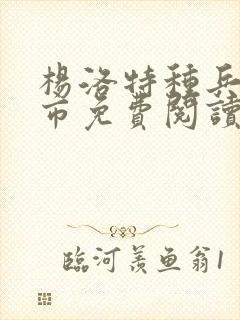 楊洛特種兵
市免費閱讀
臨河羨魚翁1